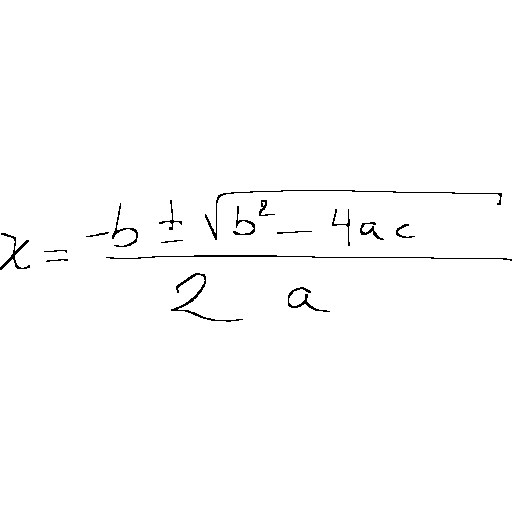 x = -b ± √b² - 4ac
2 a